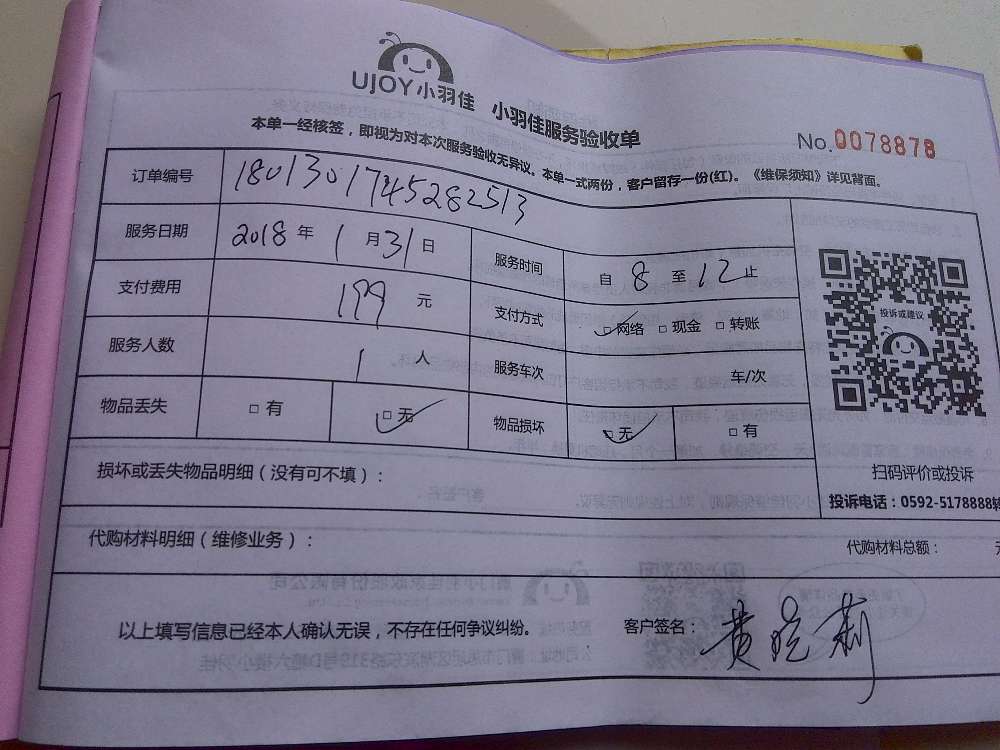 UJOY小羽佳 小羽佳服务验收单
No.0078878
本单一经核签，即视为对本次服务验收无异议。本单一式两份，客户留存一份(红)。《维保须知》详见背面。
订单编号 1801301745282513
服务日期 2018 年 1 月 31 日 服务时间 自 8 至 12 止
支付费用 199 元 支付方式 □网络 □现金 □转账
投诉或建议
服务人数 1 人 服务车次 车/次
物品丢失 □有 □无 物品损坏 □无 □有
损坏或丢失物品明细（没有可不填）：
扫码评价或投诉
投诉电话：0592-5178888转
代购材料明细（维修业务）： 代购材料总额：
以上填写信息已经本人确认无误，不存在任何争议纠纷。 客户签名：